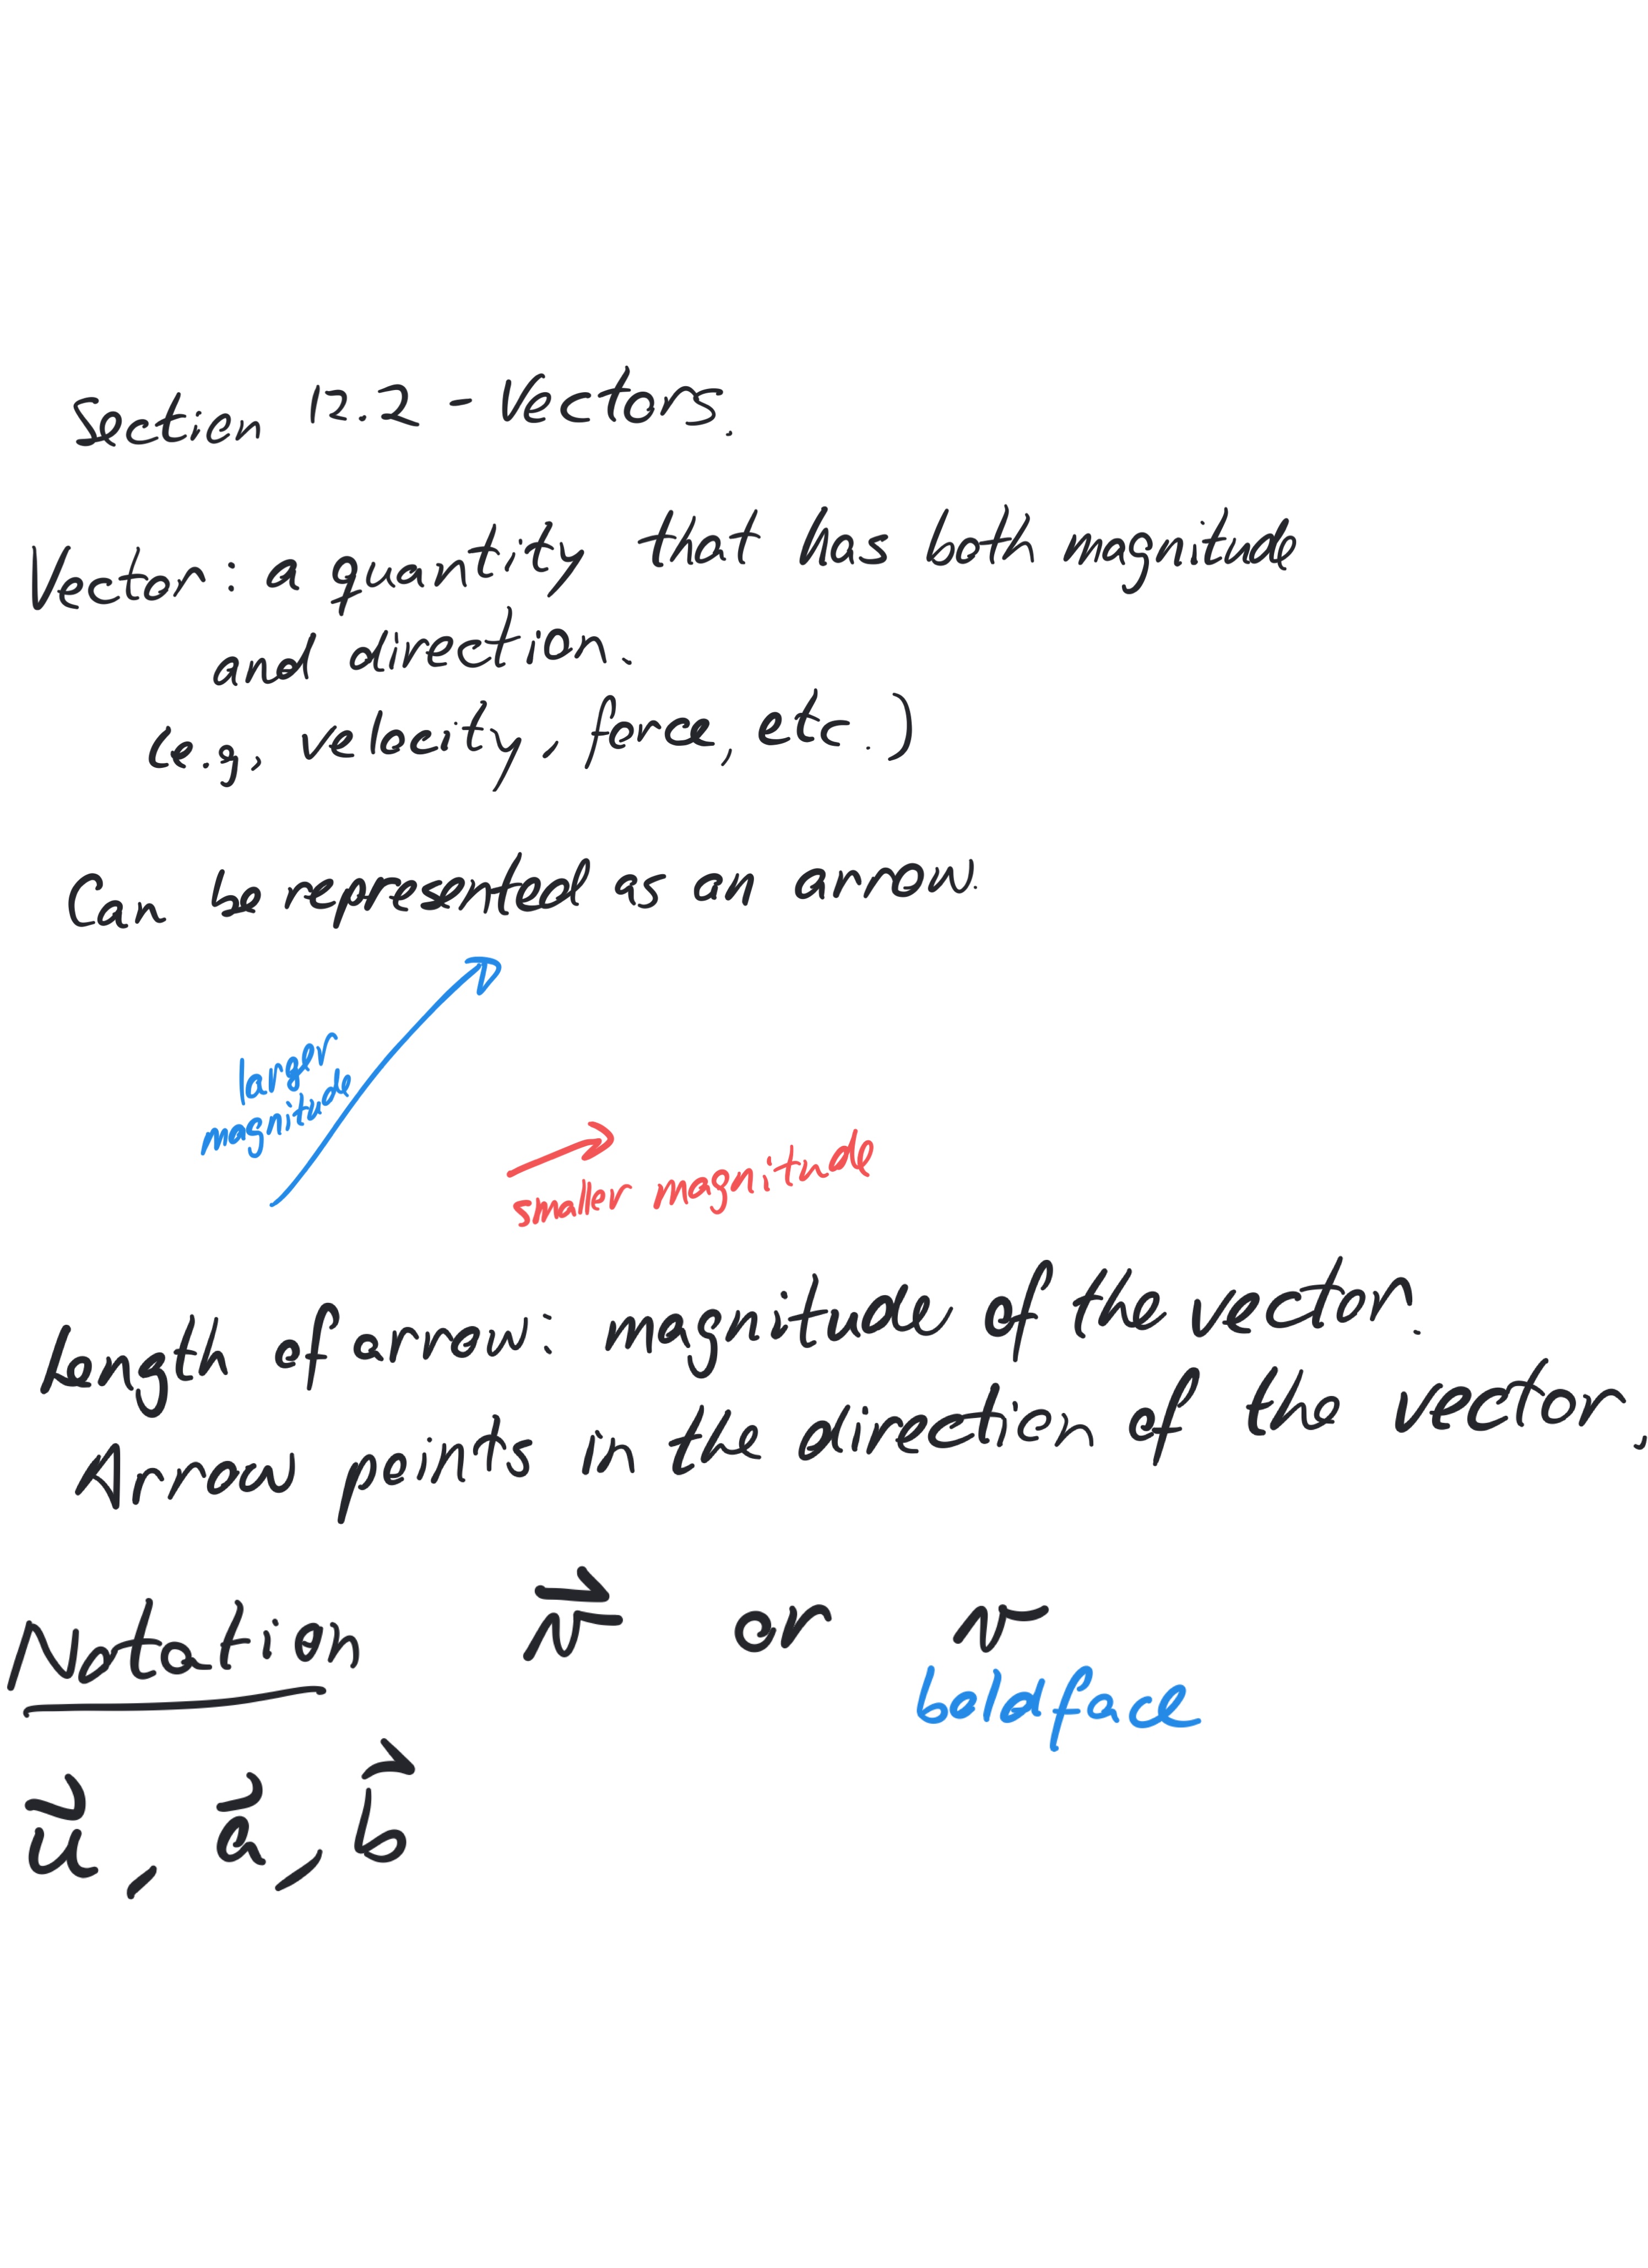 Section 12.2 - Vectors.
Vector: a quantity that has both magnitude
and direction.
(e.g, velocity, force, etc.)
Can be represented as an arrow.
larger
magnitude
smaller magnitude
Length of arrow: magnitude of the vector.
Arrow points in the direction of the vector,
Notation v⃗ or v
boldface
u⃗, a⃗, b⃗